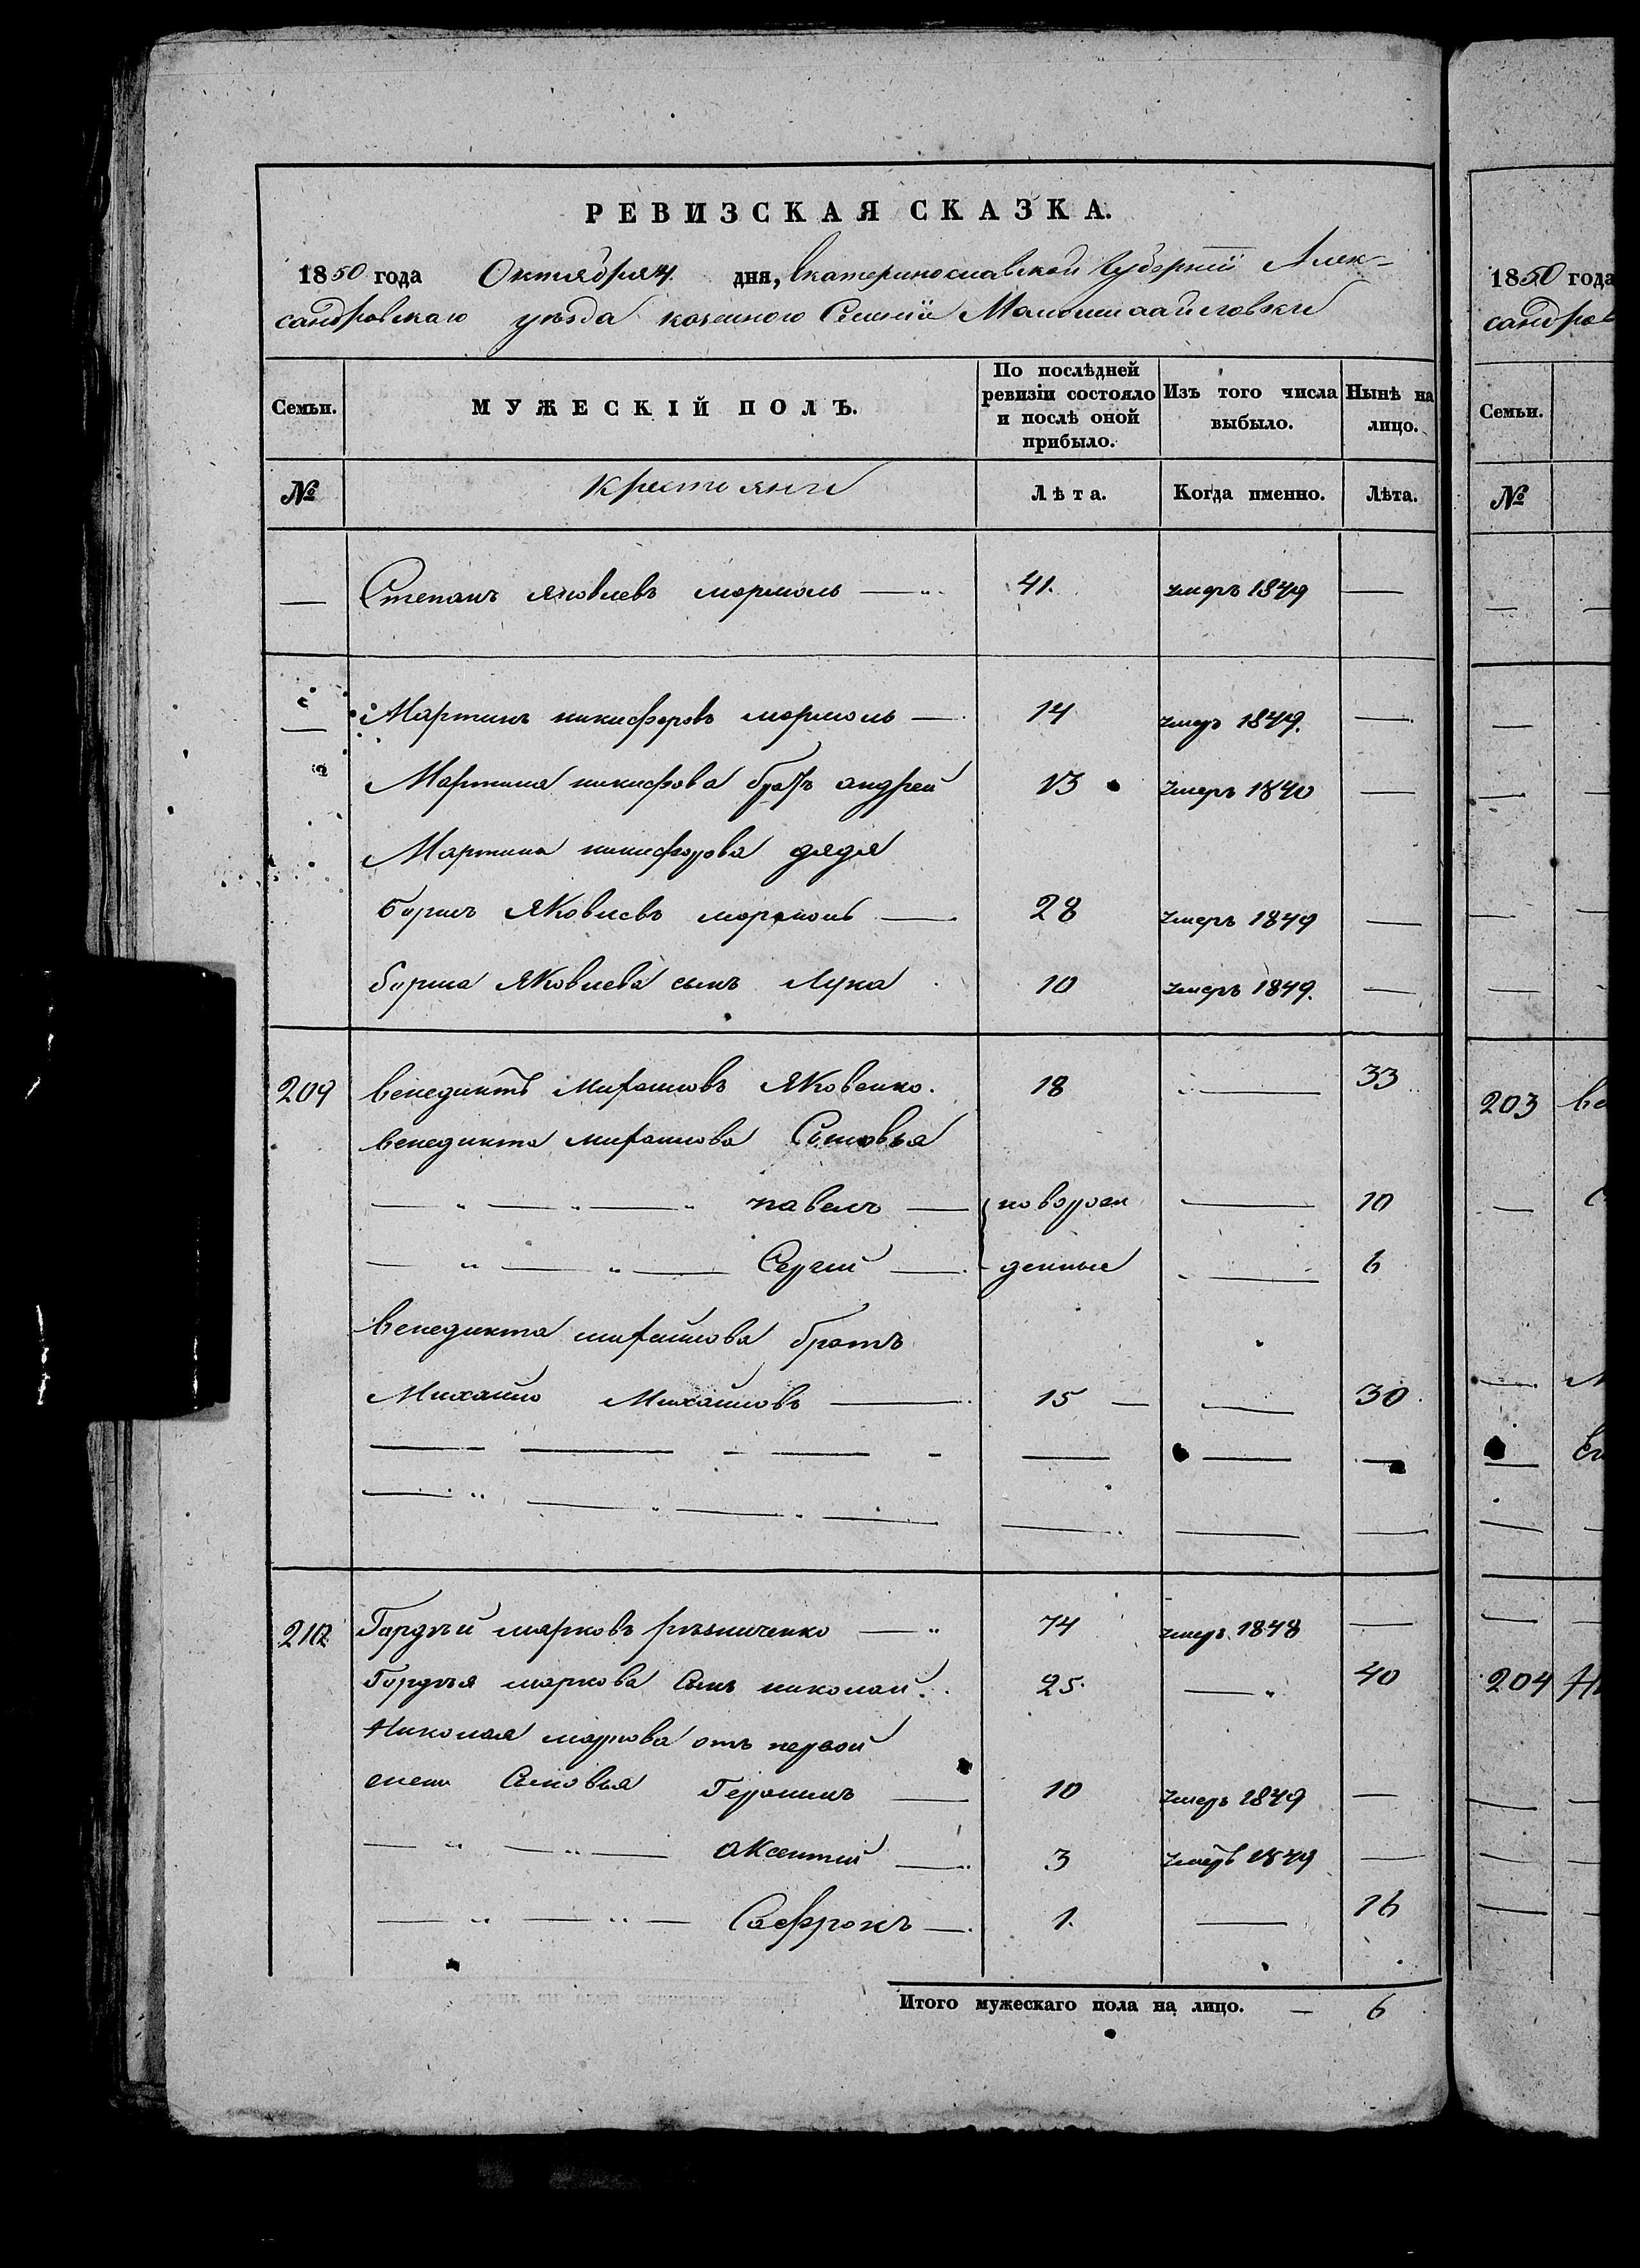 РЕВИЗСКАЯ СКАЗКА.
1850 года Октября 4 дня, Екатеринославской Губернии Алек-
сандровскаго уезда казенного Селения Маломихайловки
Семьи. МУЖЕСКІЙ ПОЛЪ. По послѣдней ревизіи состояло и послѣ оной прибыло. Изъ того числа выбыло. Нынѣ на лицо.
№ Крестьяне Лѣта. Когда именно. Лѣта.
— Степанъ Яковлевъ мормоль — 41. умеръ 1849 —
— Мартинъ никифоровъ мормоль — 14 умеръ 1849. —
Мартина никифрова братъ андрей 13 умеръ 1840 —
Мартина никифорова дядя
борисъ Яковлевъ мормоль — 28 умеръ 1849 —
бориса Яковлева сынъ Лука 10 умеръ 1849. —
209 венедиктъ Михаиловъ Яковенко. 18 — 33
венедикта михаилова Сыновья
— " — " — " павелъ — новорож — 10
— " — " — Сергий — денные — 6
венедикта михайлова братъ
Михаило Михаиловъ — 15 — — 30
210 Гордѣй марковъ рѣзниченко — 74 умеръ 1848 —
Гордѣя маркова Сынъ николай. 25. — 40
Николая маркова отъ первой
жены Сыновья Герасимъ — 10 умеръ 1849 —
— " — " — Аксентий — 3 умеръ 1849 —
— " — " — Софронъ — 1. — 16
Итого мужескаго пола на лицо. — 6
1850 года
сандров
Семьи.
№
203 ве
204 Ни